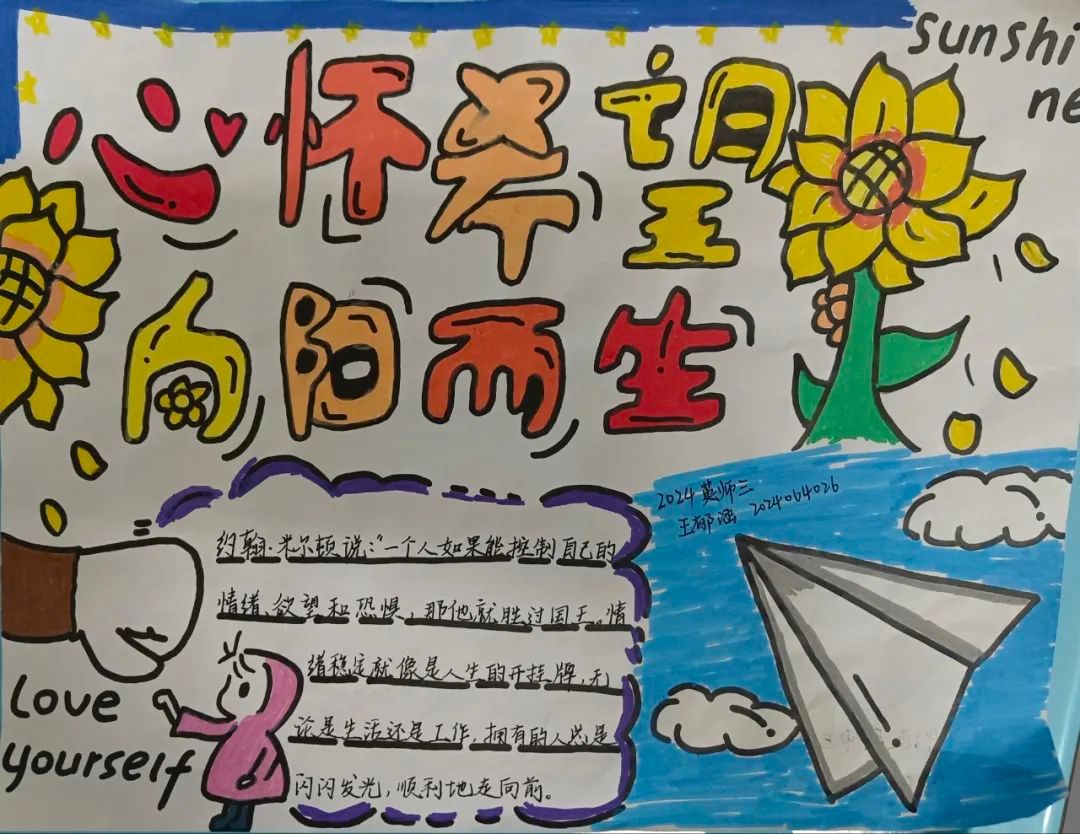 sunshi
ne
心怀希望
向阳而生
2024英师三
王郁涵 2024064026
约翰·米尔顿说:"一个人如果能控制自己的
情绪、欲望和恐惧,那他就胜过国王。情
绪稳定就像是人生的开挂牌,无
论是生活还是工作,拥有的人总是
闪闪发光,顺利地走向前。
Love
yourself